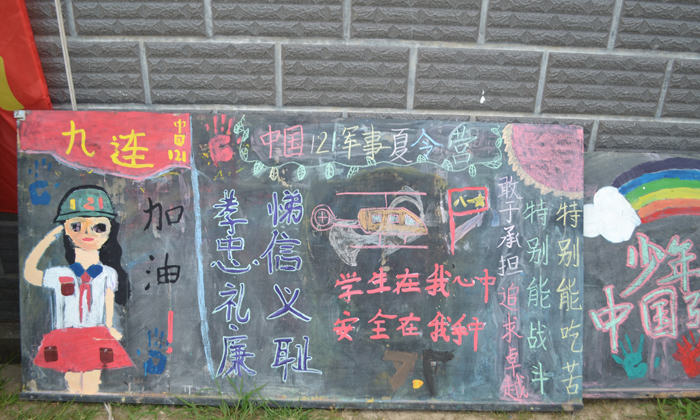 九连
中国121
121
加油!
中国121军事夏令营
孝忠礼廉
悌信义耻
八一
学生在我心中
安全在我手中
敢于承担追求卓越
特别能战斗
特别能吃苦
少年
中国